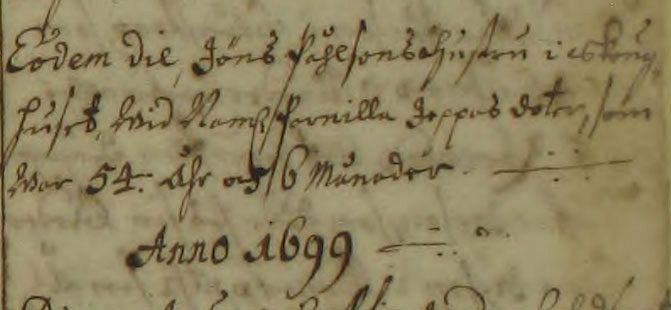 Eodem die, Jöns Påhlsons Hustru i Skoug
huset, wid Nampn Pernilla Jeppas doter, som
war 54. åhr och 6 Månader.
Anno 1699